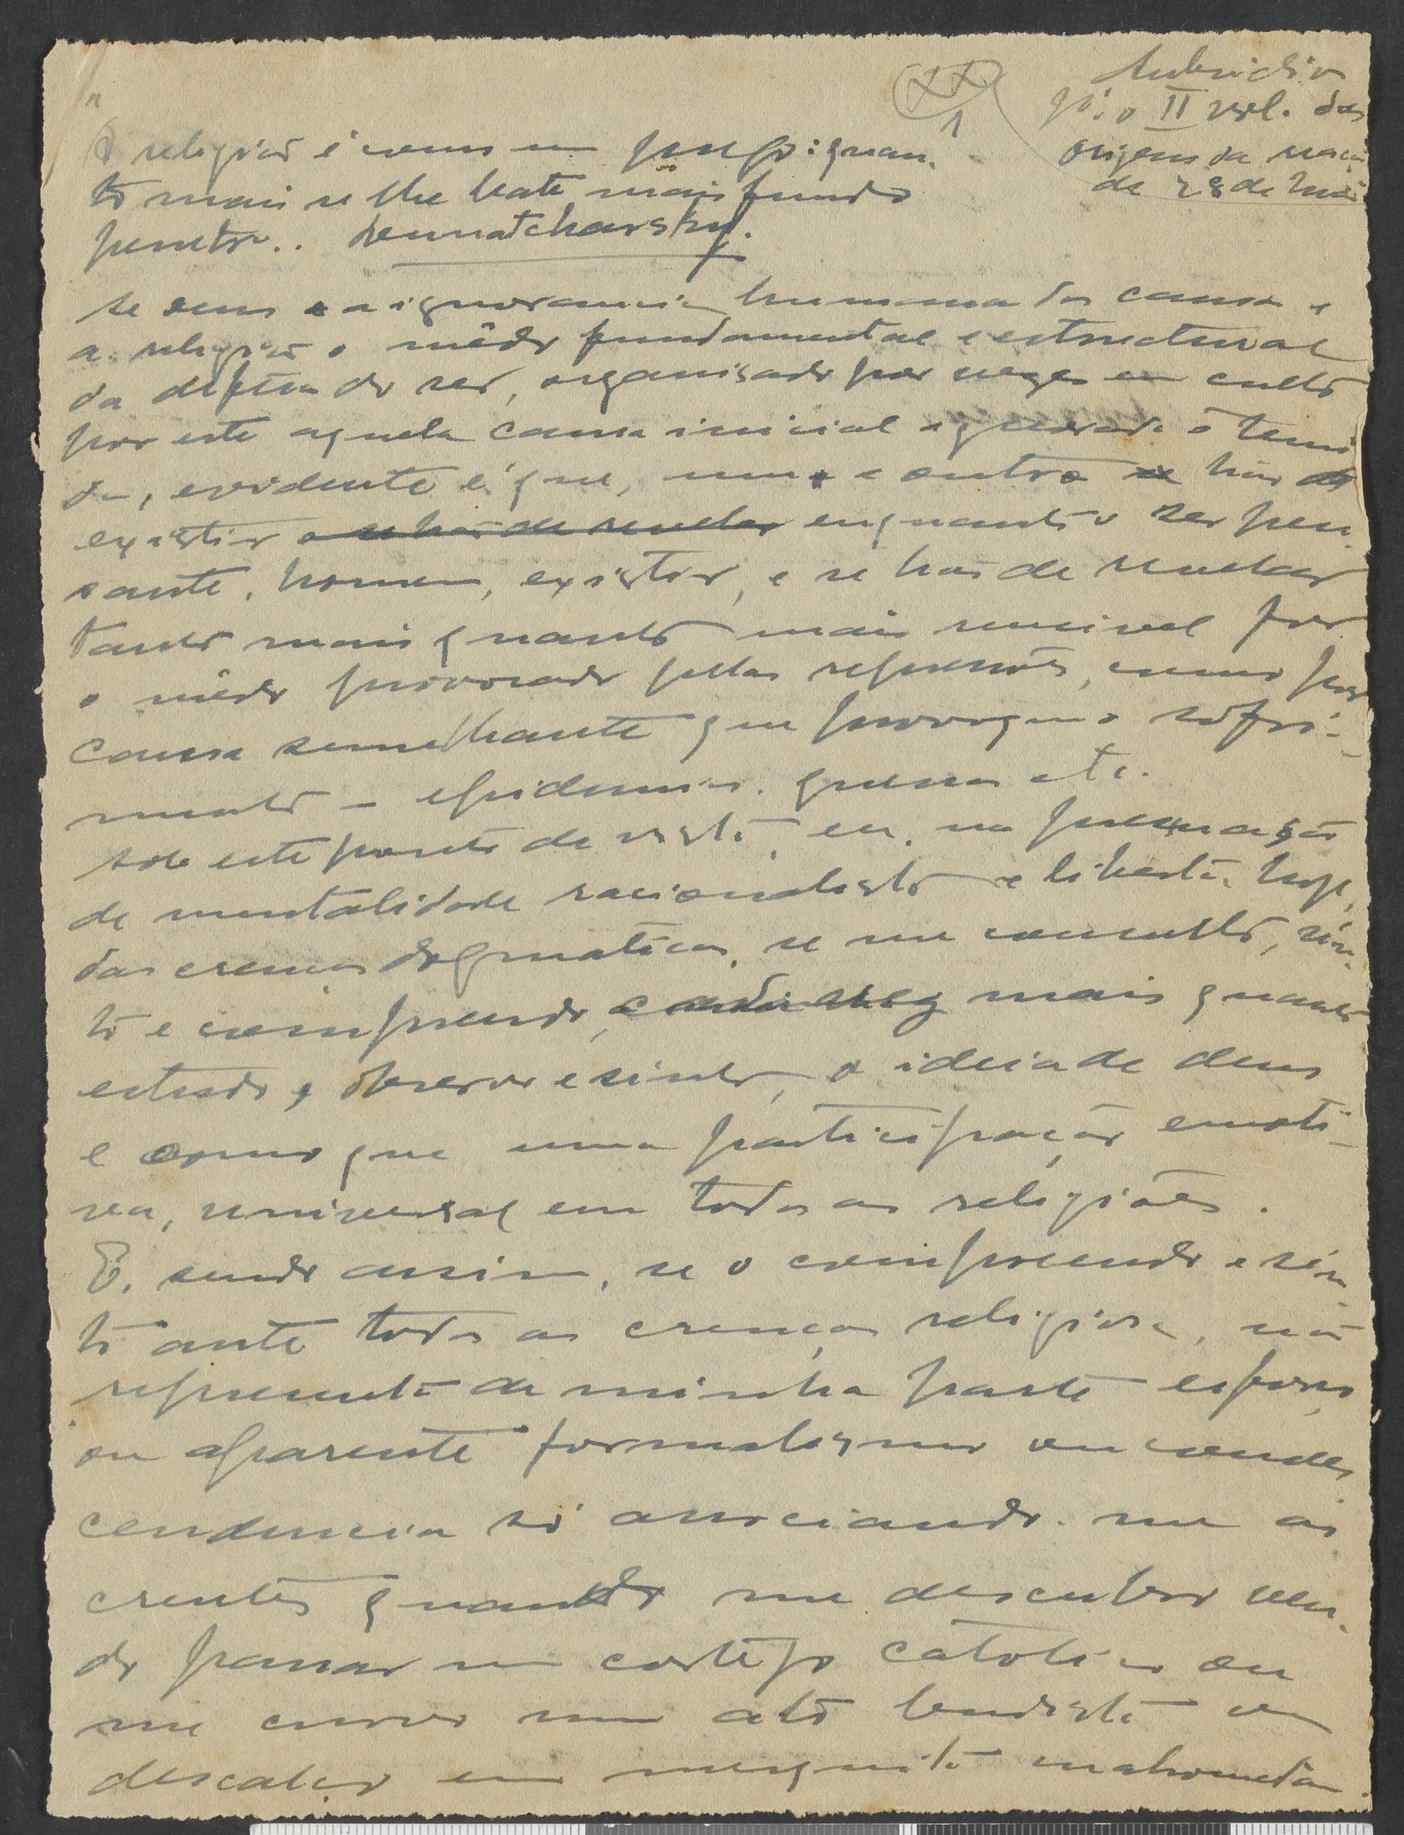 XX
1
Subsidio
pª. o II vol. das
origens da reacção
de 28 de Maio
A religião é como um prego: quan-
to mais se lhe bate mais fundo
penetra.. Lunatcharsky.
Se deus é a ignorancia humana das causas e
a religião o mêdo fundamental e estructural
da defesa do ser, organisado por vezes em culto
por este aquela causa inicial ignorada e temi-
da, evidente é que, uma e outra hão de
existir e se hão de revelar enquanto o ser pen-
sante, homem, existir, e se hão de revelar
tanto mais quanto mais sensivel for
o mêdo provocado pelas repressões, como por
causa semelhante que provoque o sofri-
mento – epidemias, guerras etc.
Sob este ponto de vista, eu, na
de mentalidade racionalista e liberta, hoje,
das crenças dogmaticas, se me consulto, sin-
to e compreendo, cada vez mais quanto
estudo, observo e sinto, a ideia de deus
e como que uma participação emoti-
va, universal em todas as religiões.
E, sendo assim, se o compreendo e sin-
to ante todas as crenças religiosas, não
representa da minha parte esforço
ou aparente formalismo ou condes-
cendencia só associando-me aos
crentes quando me descubro ven-
do passar um cortejo católico ou
me curvo num ato budista ou
descalço em mesquita mahometana.